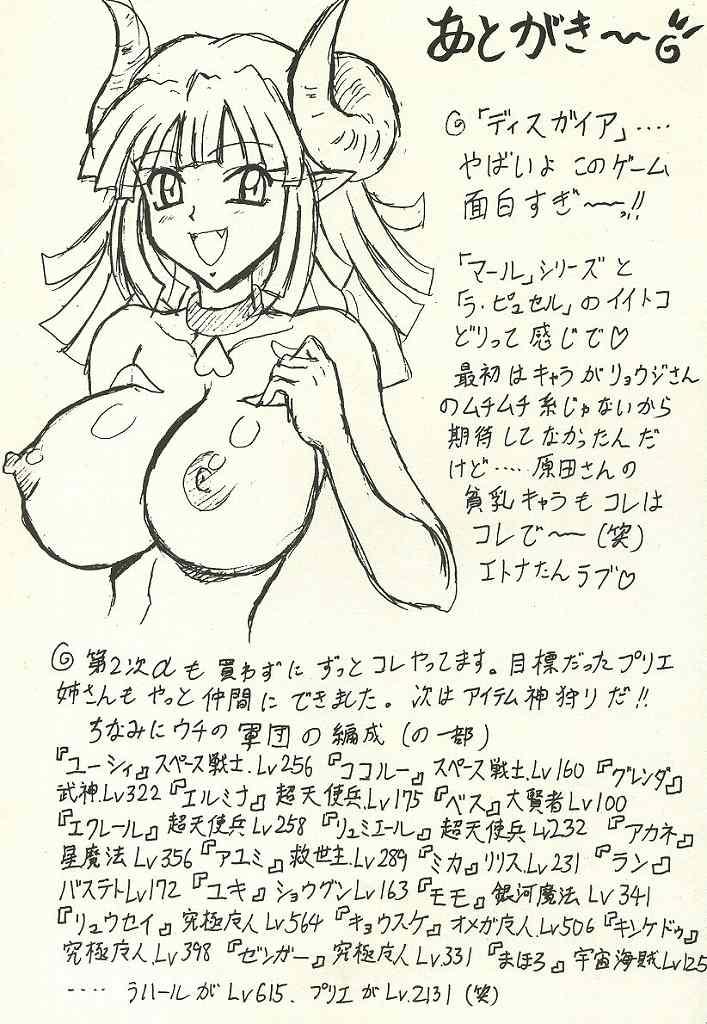 あとがき〜
◎「ディスガイア」‥‥
やばいよ このゲーム
面白すぎ〜〜!!
「マール」シリーズと
「ラ・ピュセル」のイイトコ
どりって感じで♡
最初はキャラがリョウジさん
のムチムチ系じゃないから
期待してなかったんだ
けど‥‥原田さんの
貧乳キャラもコレは
コレで〜(笑)
エトナたんラブ♡
◎第2次αも買わずにずっとコレやってます。目標だったプリエ
姉さんもやっと仲間にできました。次はアイテム神狩りだ!!
ちなみにウチの軍団の編成(の一部)
『ユーシィ』スペース戦士.Lv256『ココルー』スペース戦士.Lv160『グレンダ』
武神.Lv322『エルミナ』超天使兵.Lv175『ベス』大賢者Lv100
『エクレール』超天使兵Lv258『リュミエール』超天使兵Lv232『アカネ』
星魔法Lv356『アユミ』救世主.Lv289『ミカ』リリス.Lv231『ラン』
バステトLv172『ユキ』ショウグンLv163『モモ』銀河魔法Lv341
『リュウセイ』究極广人.Lv564『キョウスケ』オメガ广人.Lv506『キンケドゥ』
究極广人.Lv398『ゼンガー』究極广人.Lv331『まほろ』宇宙海賊Lv125
‥‥ラハールがLv615、プリエがLv.2131(笑)